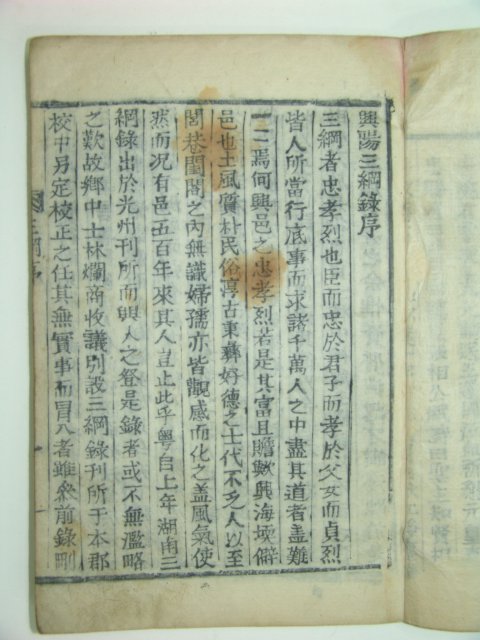 興陽三綱錄序
三綱者忠孝烈也臣而忠於君子而孝於父女而貞烈
皆人所當行底事而求諸千萬人之中盡其道者盖難
一二焉何興邑之忠孝烈若是其富且贍歟興海堧僻
邑也土風質朴民俗淳古秉彛好德之士代不乏人以至
閭巷閨閤之內無識婦孺亦皆觀感而化之盖風氣使
然而况有邑五百年來其人豈止此乎粤自上年湖南三
綱錄出於光州刊所而興人之登是錄者或不無濫略
之歎故鄕中士林爛商收議別設三綱錄刊所于本郡
校中另定校正之任其無實事而冒入者雖參前錄刪